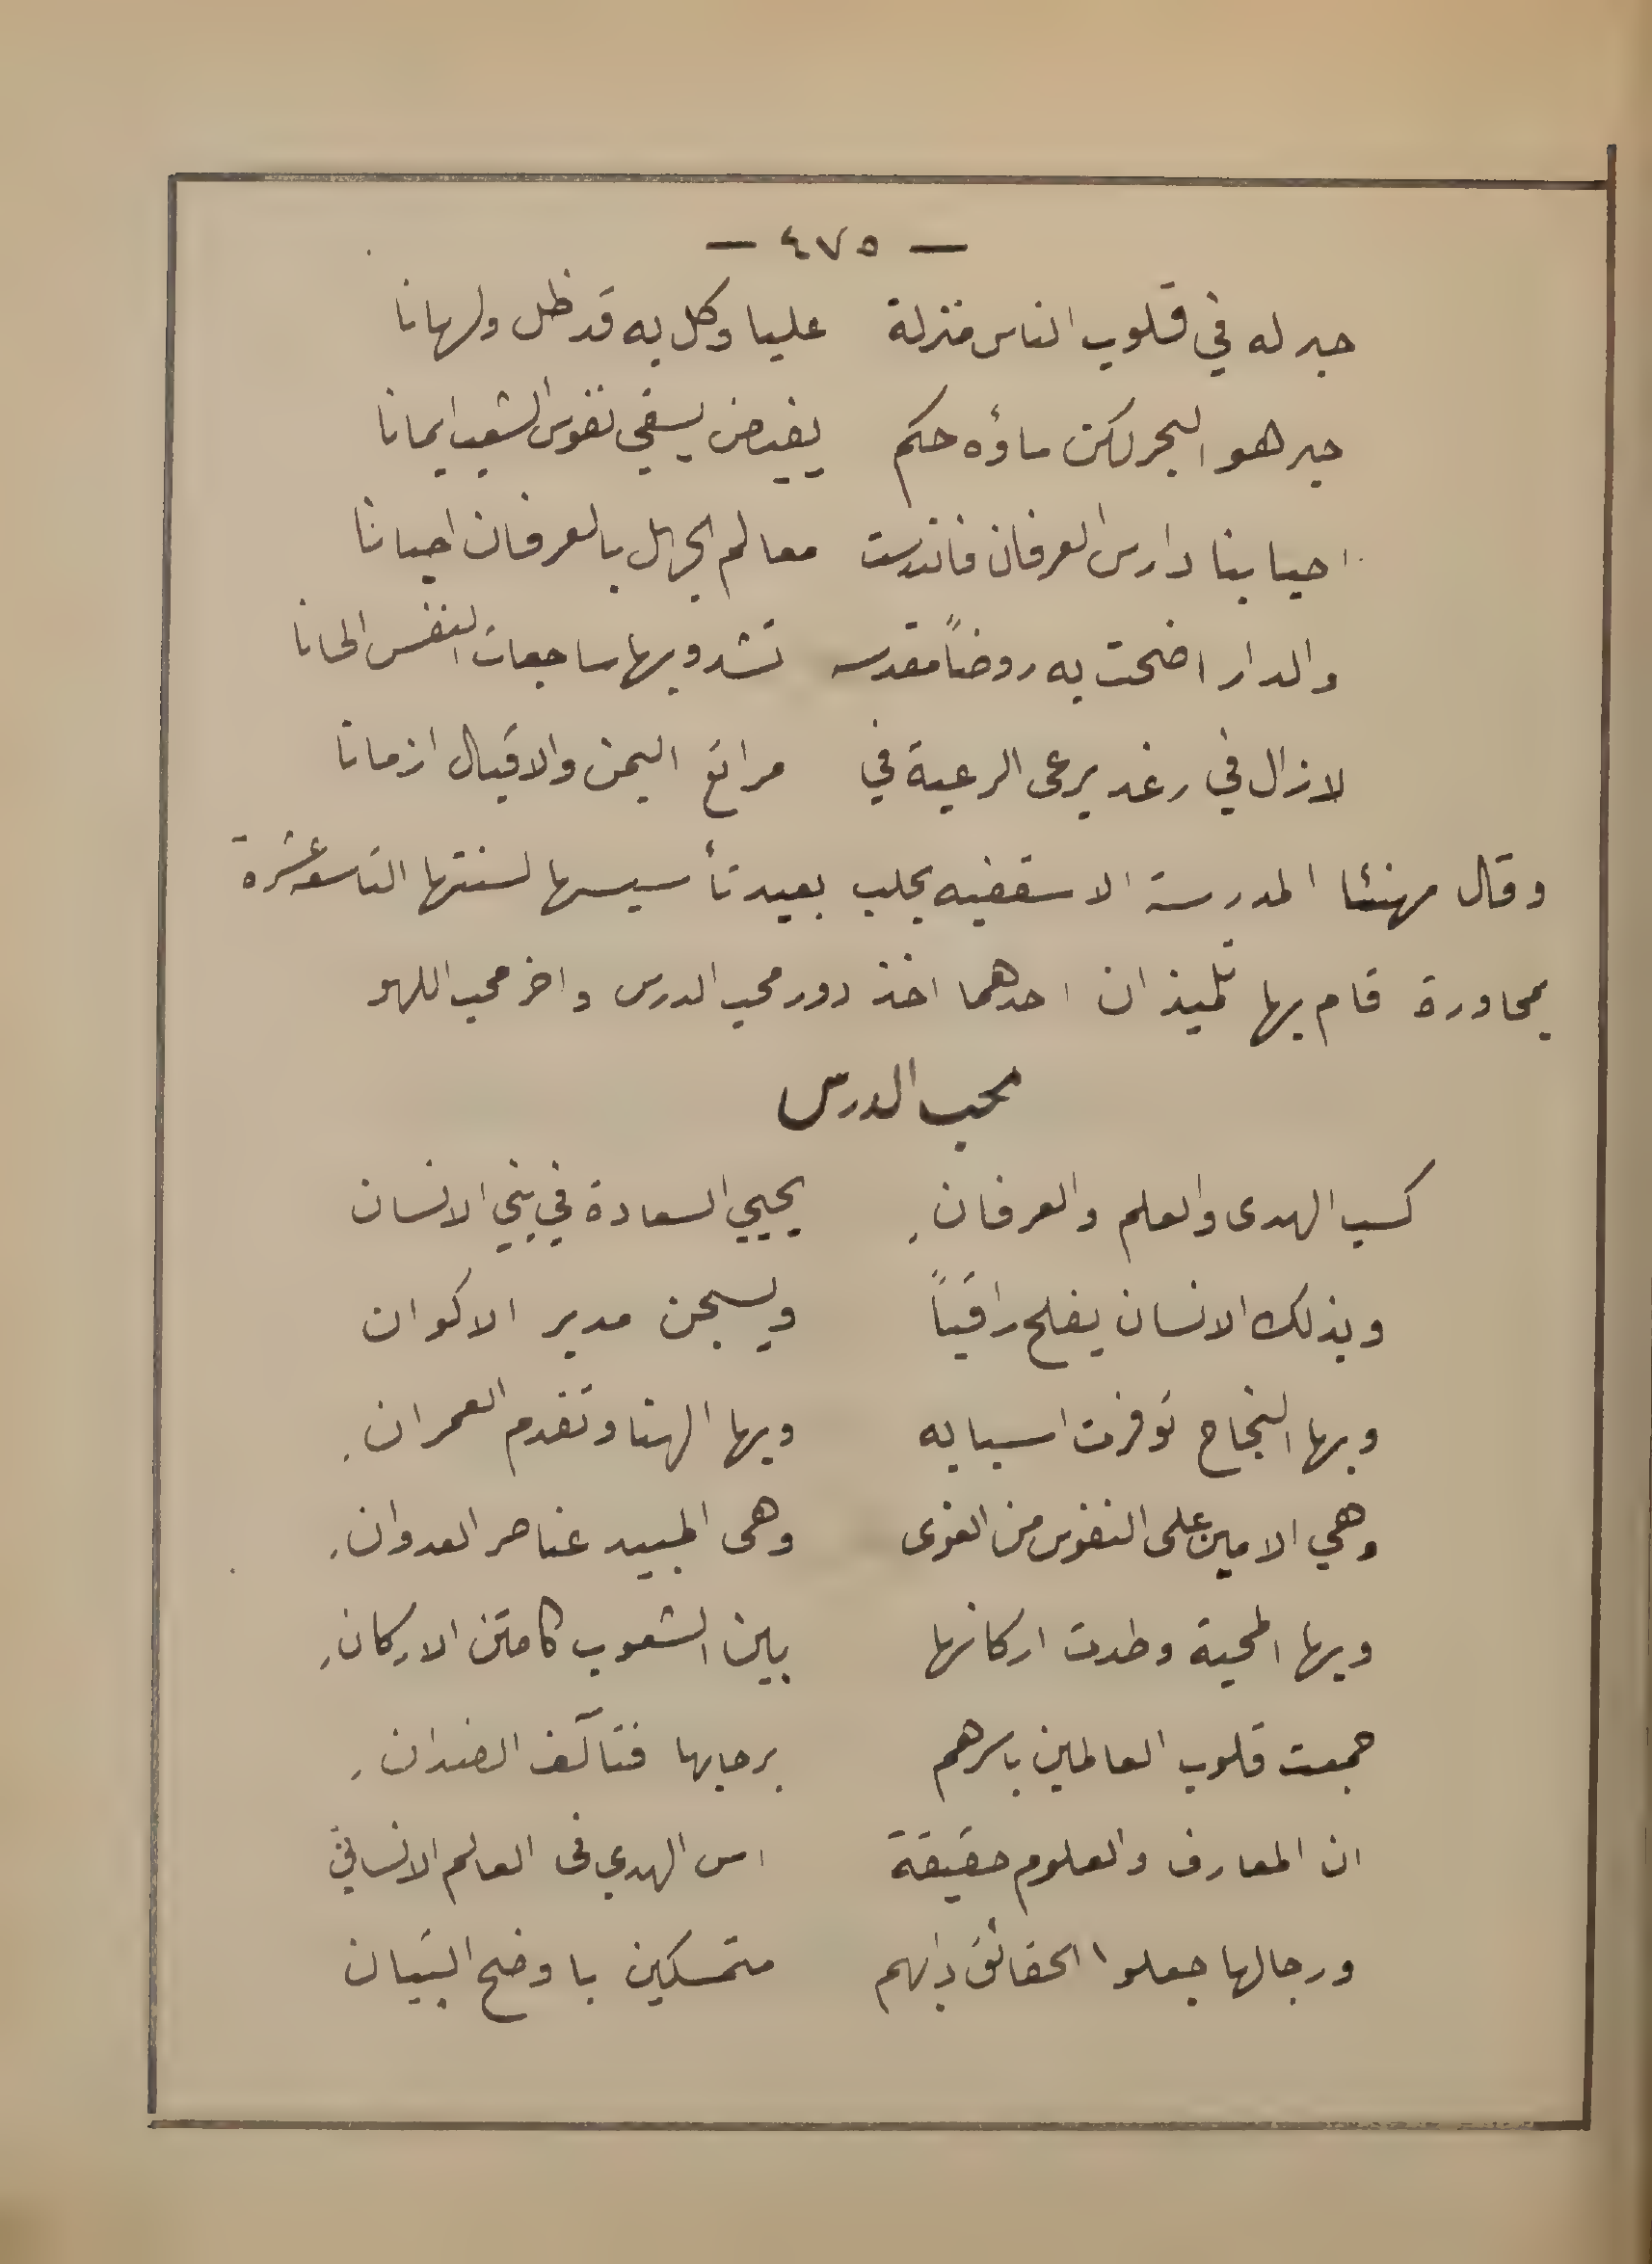 — ٤٧٥ —
حبر له في قلوب الناس منزلة عليا وكل به قد ظل ولهانا
حبر هو البحر لكن ماؤه حكم يفيض يسقي نفوس الشعب ايمانا
احيا بنا دارس العرفان فاندرست معالم الجهل بالعرفان احيانا
والدار اضحت به روضاً مقدسه تشدو بها ساجعات النفس الحانا
لا زال في رغد يرعى الرعية في مراتع اليمن والاقبال ازمانا
وقال مهنئا المدرسة الاسقفيه بحلب بعيد تأسيسها لسنتها التاسعة عشرة
بمحاورة قام بها تلميذان احدهما اخذ دور محب الدرس واخر محب اللهو
محب الدرس
كسب الهدى والعلم والعرفانِ يحيي السعادة في بني الانسان
وبذلك الانسان يفلح راقياً ويسجن مدبر الاكوان
وبها النجاح توفرت اسبابه وبها الهنا وتقدم العمرانِ
وهي الامين على النفوس من الغوى وهى المبيد عناصر العدوانِ
وبها المحبة وطدت اركانها بين الشعوب كامتن الاركانِ
جمعت قلوب العالمين باسرهم برحابها فتآلف الضدانِ
ان المعارف والعلوم حقيقة اس الهدي فى العالم الانساني
ورجالها جعلوا الحقائق دابهم متمسكين باوضح التبيان